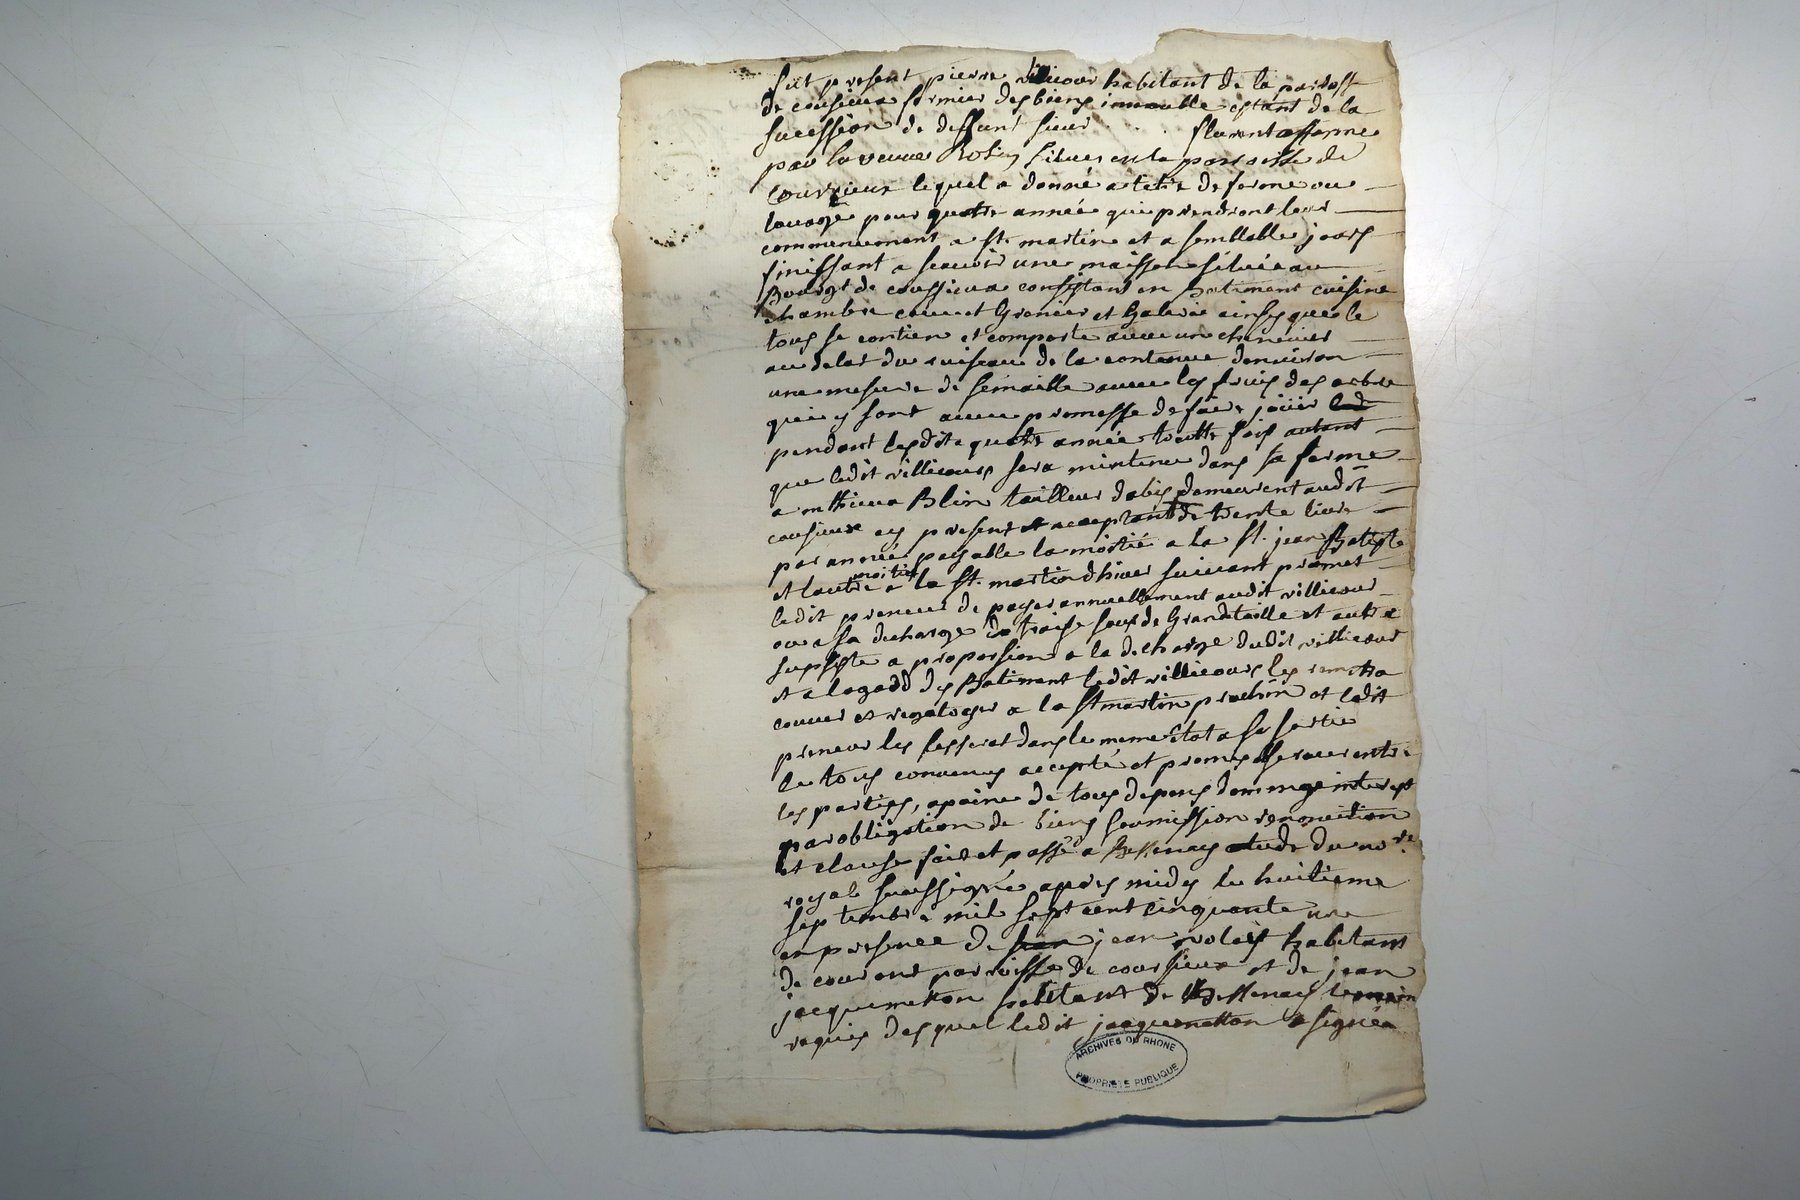 fut present pierre villicour habitant de la paroisse
de cousieux fermier des biens immeuble estant de la
sucession de deffunt sieur . . . flurent afferme
par la veuve situes en la paroisse de
Courzieux lequel a donné a titre de ferme ou
louage pour quatre année qui prendront leur
commencement a St. martin et a semblable jours
finissant a scavoir une maison situé au
Bourgt de coussieux consistant en batiment cuisine
chambre cave et Grenier et Galerie ainsy que le
tous se contien et comporte avec un chenevier
au dela du ruiseau de la contenue denviron
une mesure de semaille avec les fruis des arbre
qui y sont avec promesse de faire jouir
pendant lesdite quatre année toutte fois autant
que ledit villicours sera mintenu dans sa ferme
a mthieux Blin tailleur dabis demeurent audit
cousieux cy present et aceptant de trente livre
par année payable la moitié a la St. jean Batiste
et lautre moitier a la St. martin dhiver suivant promet
ledit preneur de payer annuellement audit villicour
ou a sa decharge de traise sous de Grande taille et autre
supsiste a proporsion a la decharge dudit villicour
et a legard des Batiment ledit villicours les remetra
couver et regaloyer a la St martin prochin et ledit
preneur les lesserat dans le meme etat a sa sortie
le tous convenus accepté et promis observer entre
les parties, a paine de tous depens dommage interest
par obligation de biens soumission renonciation
et clause fait et passé a Bessenay etude du no.re
royale soussigné apres midy le huitieme
septembre mil sept cent cinquante une
en presence de jean habitant
de paroisse de coursieux et de jean
jacquemetton habitant de Bessenay temoin
requis desquel ledit jacquemetton a signée
ARCHIVES DU RHONE
PROPRIÉTÉ PUBLIQUE